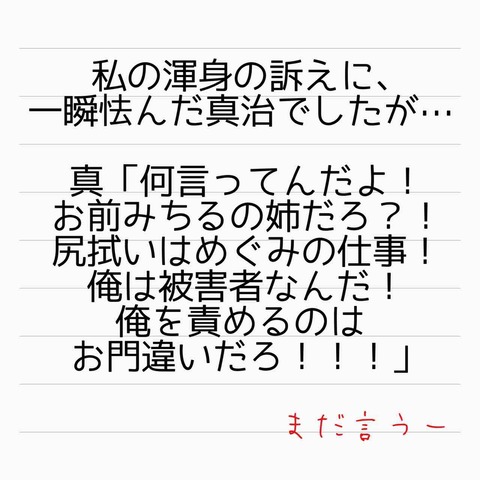 私の渾身の訴えに、
一瞬怯んだ真治でしたが…
真「何言ってんだよ！
お前みちるの姉だろ？！
尻拭いはめぐみの仕事！
俺は被害者なんだ！
俺を責めるのは
お門違いだろ！！！」
まだ言うー